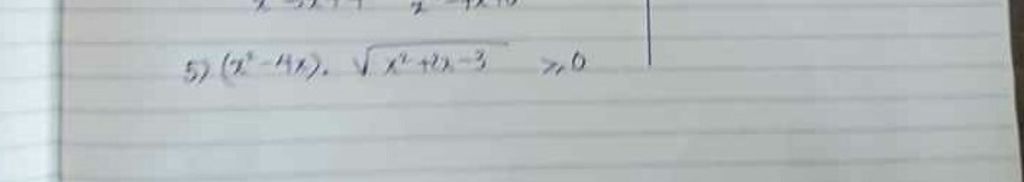 5) (x² - 4x). √x² + 2x - 3 ≥ 0